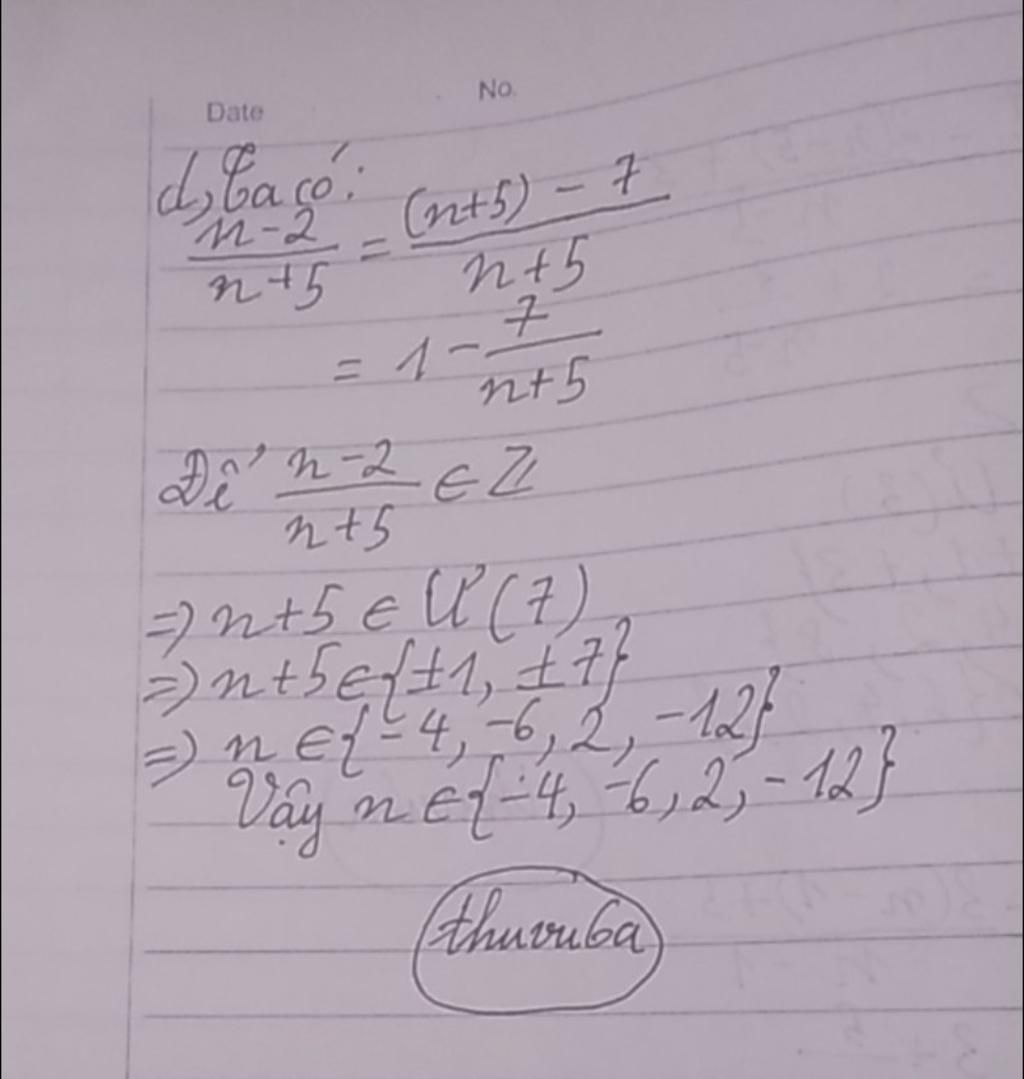 Date No.
d, Ta có:
n-2/n+5 = (n+5) - 7/n+5
= 1 - 7/n+5
Để n-2/n+5 ∈ Z
=> n+5 ∈ Ư(7)
=> n+5 ∈ {±1, ±7}
=> n ∈ {-4, -6, 2, -12}
Vậy n ∈ {-4, -6, 2, -12}
thuvu6a